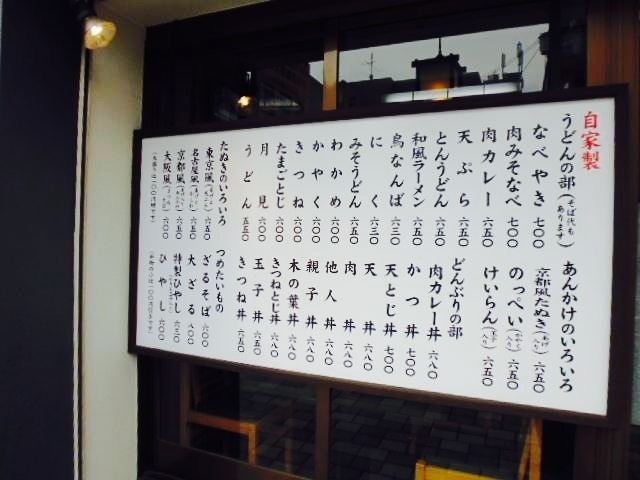 自家製
うどんの部(そば代も あります)
なべやき 七〇〇
肉みそなべ 七〇〇
肉カレー 六五〇
天ぷら 六五〇
とんうどん 六五〇
和風ラーメン 六五〇
鳥なんば 六三〇
にく 六三〇
みそうどん 六五〇
わかめ 六〇〇
かやく 六〇〇
きつね 六〇〇
たまごとじ 六〇〇
月見 六〇〇
うどん 五五〇
たぬきのいろいろ
東京風 六五〇
名古屋風 六五〇
京都風 六五〇
大阪風 六〇〇
あんかけのいろいろ
京都風たぬき 六五〇
のっぺい 六五〇
けいらん(玉子入り) 六五〇
どんぶりの部
肉カレー丼 六八〇
かつ丼 七〇〇
天とじ丼 七〇〇
天丼 六八〇
肉丼 六八〇
他人丼 六八〇
親子丼 六八〇
木の葉丼 六八〇
きつねとじ丼 六八〇
玉子丼 六五〇
きつね丼 六五〇
つめたいもの
ざるそば 六〇〇
大ざる 八〇〇
特製ひやし 六三〇
ひやし 六〇〇